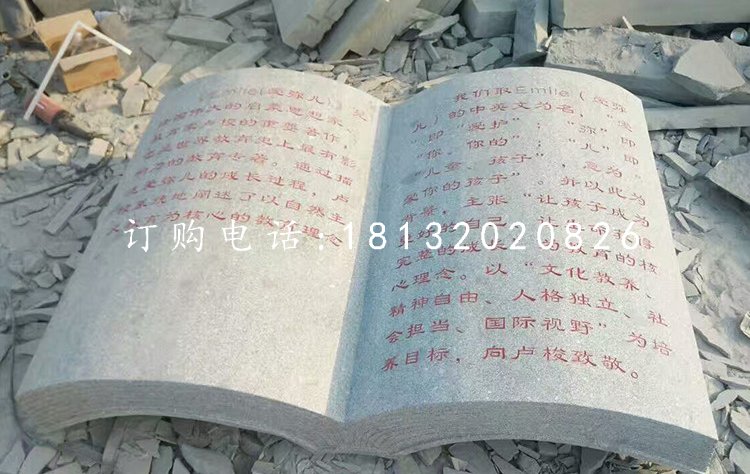 《Emile(爱弥儿)》是
法国伟大的启蒙思想家、
教育家卢梭的重要著作,
也是世界教育史上最有影
响力的教育专著。通过描
述爱弥儿的成长过程,卢
梭系统地阐述了以自然主
教育为核心的教育理念
我们取Emile(爱弥
儿)的中英文为名,“爱
”即“爱护”;“弥”即
“你、你的”;“儿”即
“儿童、孩子”,意为“
爱你的孩子”。并以此为
背景,主张“让孩子成为
更好的自己,让生命
完整的成 教育的核
心理念。以“文化教养、
精神自由、人格独立、社
会担当、国际视野”为培
养目标,向卢梭致敬。
订购电话:18132020826